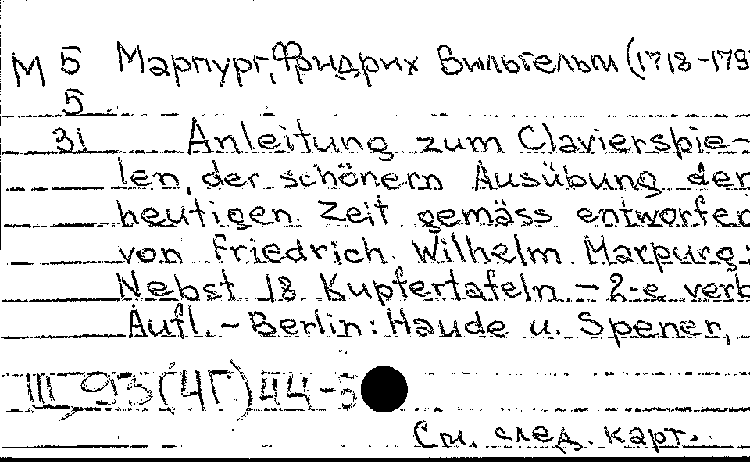 М 5 Марпург, Фридрих Вильгельм (1718-179
5
31 Anleitung zum Clavierspie-
len, der schönern Ausübung der
heutigen Zeit gemäss entworfen
von Friedrich Wilhelm Marpurg.
Nebst 18 Kupfertafeln – 2-e verb
Aufl. – Berlin: Haude u. Spener,
III, 93 (4Г) 44-5
См. след. карт.